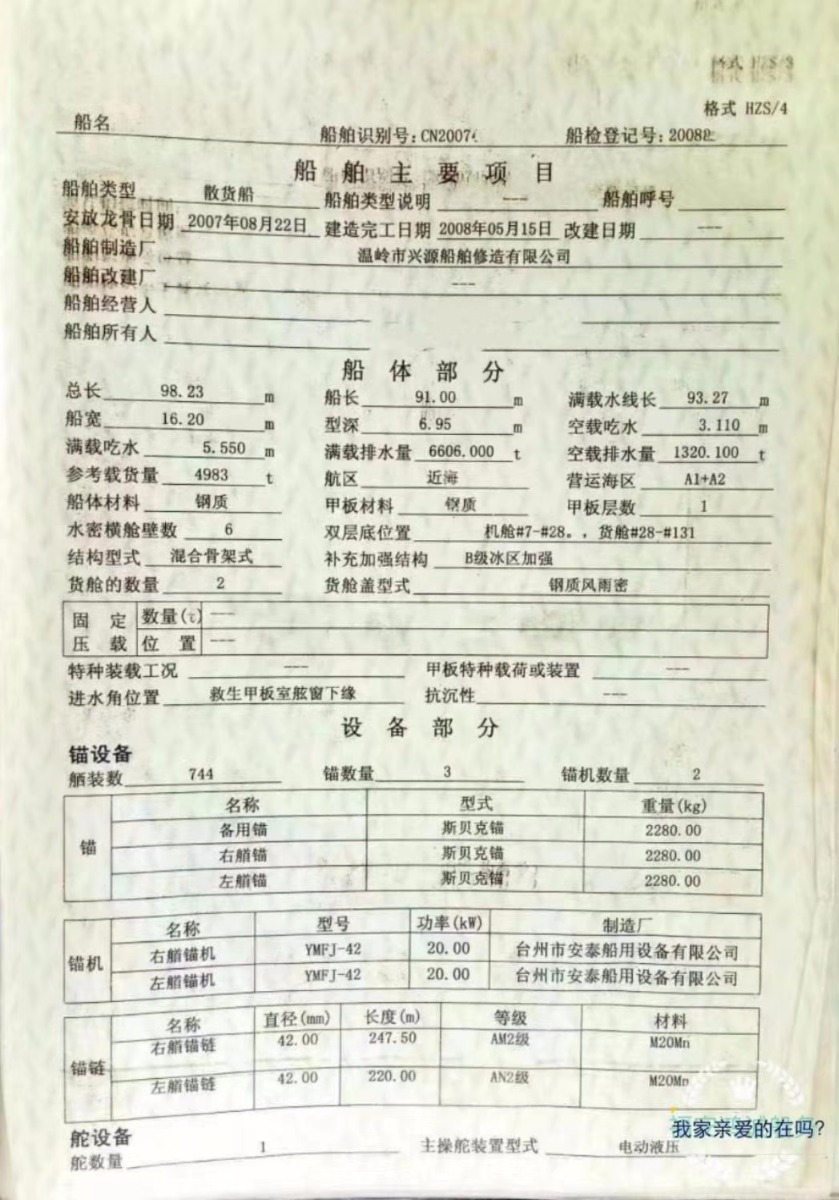 格式 HZS/4
船名 船舶识别号:CN2007 船检登记号:20088
船舶主要项目
船舶类型 散货船 船舶类型说明 --- 船舶呼号
安放龙骨日期 2007年08月22日 建造完工日期 2008年05月15日 改建日期 ---
船舶制造厂 温岭市兴源船舶修造有限公司
船舶改建厂 ---
船舶经营人
船舶所有人
船体部分
总长 98.23 m 船长 91.00 m 满载水线长 93.27 m
船宽 16.20 m 型深 6.95 m 空载吃水 3.110 m
满载吃水 5.550 m 满载排水量 6606.000 t 空载排水量 1320.100 t
参考载货量 4983 t 航区 近海 营运海区 A1+A2
船体材料 钢质 甲板材料 钢质 甲板层数 1
水密横舱壁数 6 双层底位置 机舱#7-#28。，货舱#28-#131
结构型式 混合骨架式 补充加强结构 B级冰区加强
货舱的数量 2 货舱盖型式 钢质风雨密
固定 数量(t) ---
压载 位置 ---
特种装载工况 --- 甲板特种载荷或装置 ---
进水角位置 救生甲板室舷窗下缘 抗沉性 ---
设备部分
锚设备
舾装数 744 锚数量 3 锚机数量 2
名称 型式 重量(kg)
备用锚 斯贝克锚 2280.00
锚 右艏锚 斯贝克锚 2280.00
左艏锚 斯贝克锚 2280.00
名称 型号 功率(kW) 制造厂
锚机 右艏锚机 YMFJ-42 20.00 台州市安泰船用设备有限公司
左艏锚机 YMFJ-42 20.00 台州市安泰船用设备有限公司
名称 直径(mm) 长度(m) 等级 材料
右艏锚链 42.00 247.50 AM2级 M20Mn
锚链
左艏锚链 42.00 220.00 AN2级 M20Mn
舵设备
我家亲爱的在吗?
舵数量 1 主操舵装置型式 电动液压